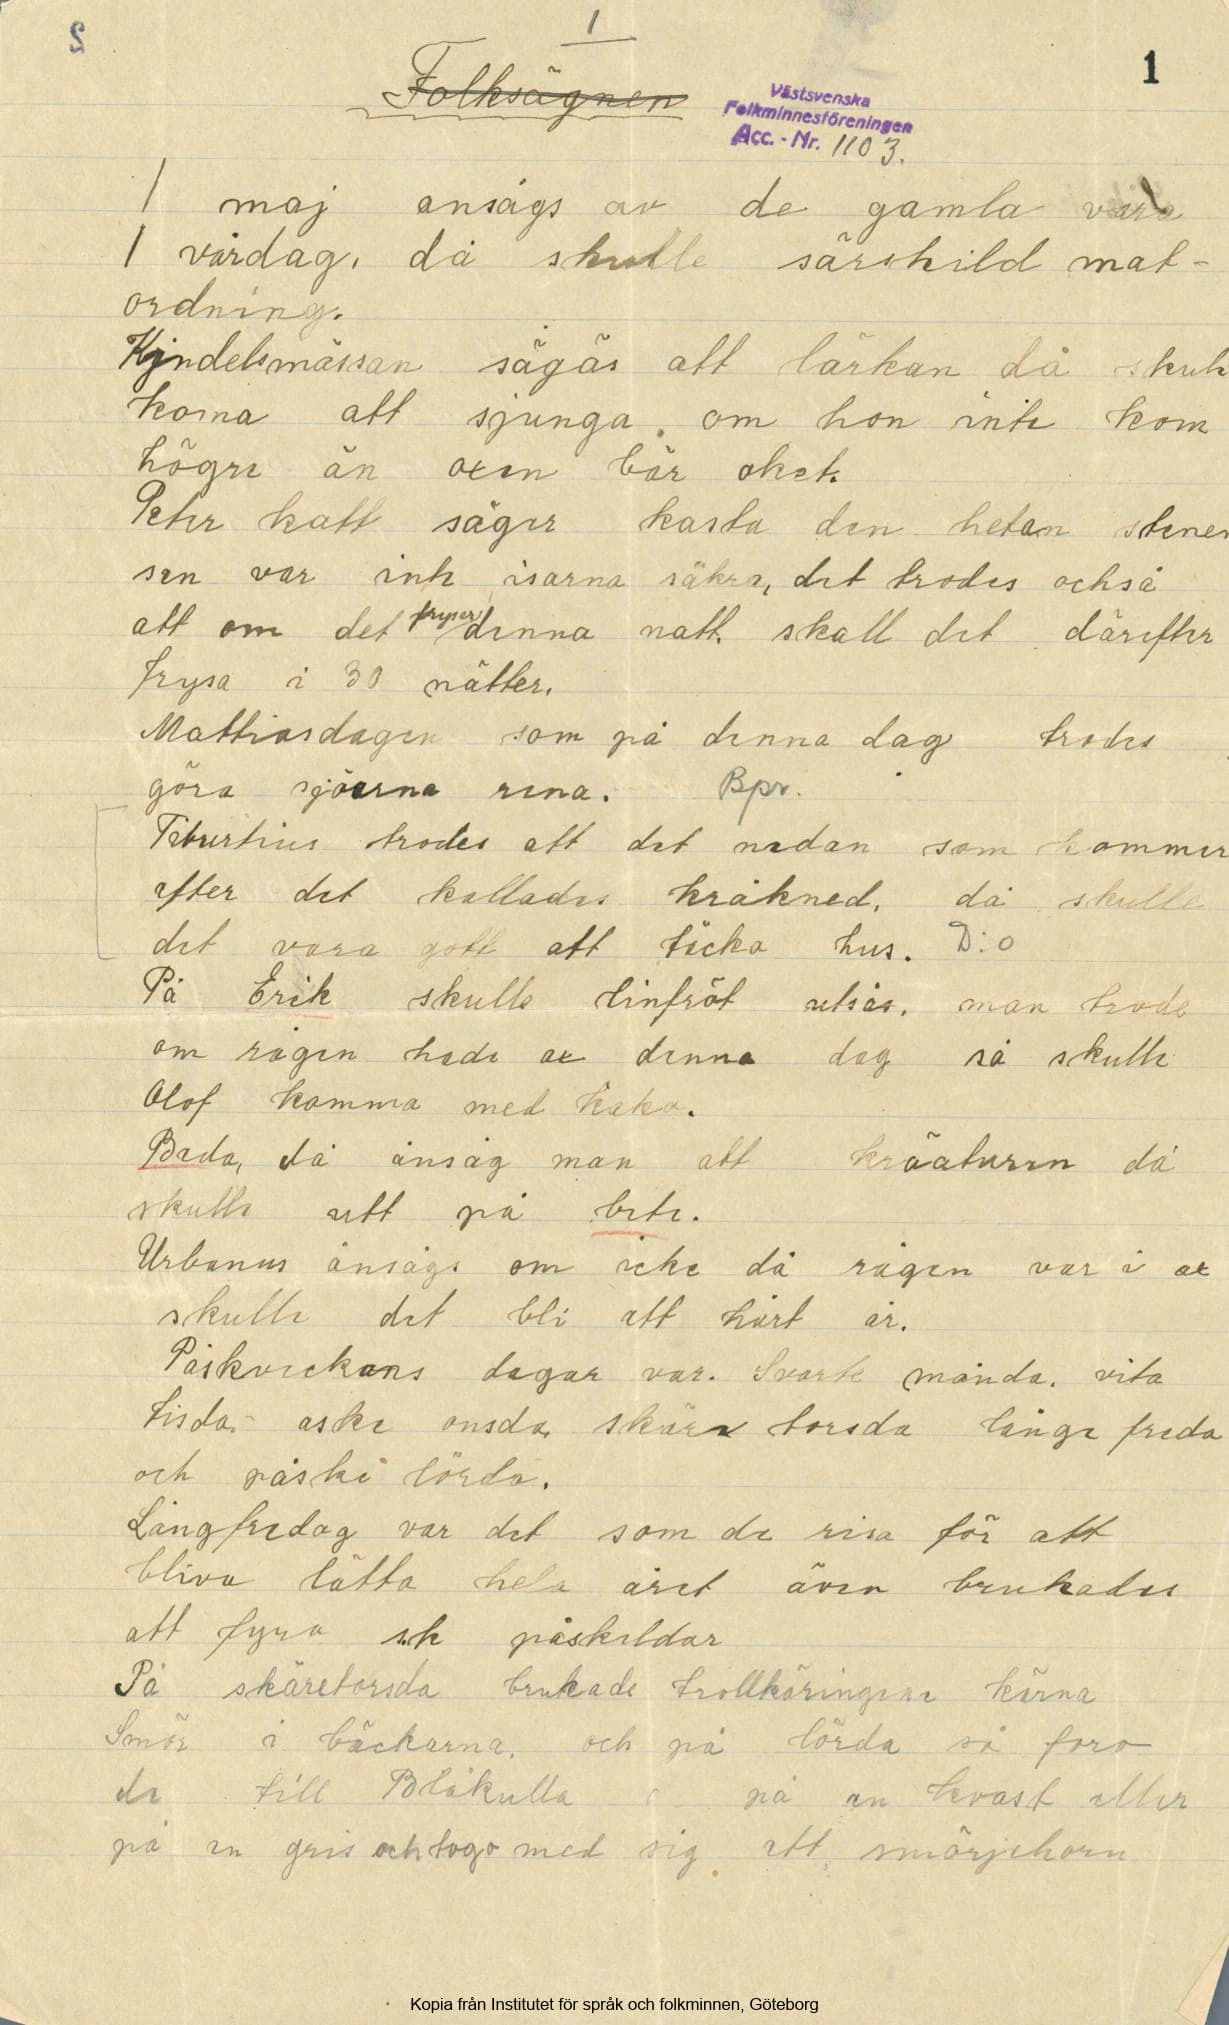 1
1
Folksägnen
Västsvenska
Folkminnesföreningen
Acc. - Nr. 1103.
1 maj ansågs av de gamla vara
1 vårdag, då skulle särskild mat-
ordning.
Kyndelsmässan sägäs att lärkan då skule
koma att sjunga. om hon inte kom
högre än oxen bär oket.
Peter katt säger kasta den hetan stenen
sen var inte isarna säkra, det trodes också
att om det fryser denna natt. skall det därefter
frysa i 30 nätter.
Mattiasdagen som på denna dag trodes
göra sjöarna rena. Bpr.
Teburtius trodes att det nedan som kommer
efter det kallades kråkned, då skulle
det vara gott att täcka hus. D:o
På Erik skulle linfröt utsås. man trode
om rågen hade ax denna dag så skulle
Olof komma med kaka.
Beda, då ansåg man att kräaturen då
skulle utt på bete.
Urbanus ansågs om icke då rågen var i ax
skulle det bli ett hårt år.
Påskveckans dagar var. Svarte månda. vita
tisda. aske onsda, skära torsda långe freda
och påske lörda.
Långfredag var det som de risa för att
bliva lätta hela året även brukades
att fyra s.k påskeldar
På skäretorsda brukade trollkäringene kärna
Smör i bäckarna. och på lörda så foro
de till Blåkulla på en kvast eller
på en gris och togo med sig ett smörjehorn
Kopia från Institutet för språk och folkminnen, Göteborg